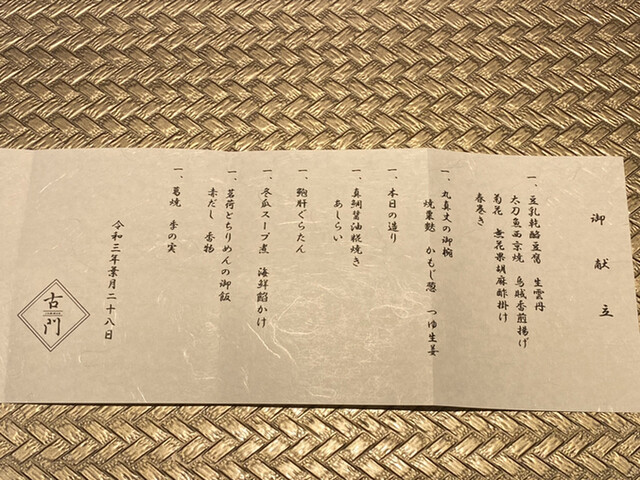 御献立
一、豆乳乾酪豆腐 生雲丹
太刀魚西京焼 烏賊香煎揚げ
菊花 無花果胡麻酢掛け
春巻き
一、丸真丈の御椀
焼粟麩 かもじ葱 つゆ生姜
一、本日の造り
一、真鯛醤油糀焼き
あしらい
一、鮑肝ぐらたん
一、冬瓜スープ煮 海鮮餡かけ
一、茗荷とちりめんの御飯
赤だし 香物
一、葛焼 季の実
令和三年葉月二十八日
古門